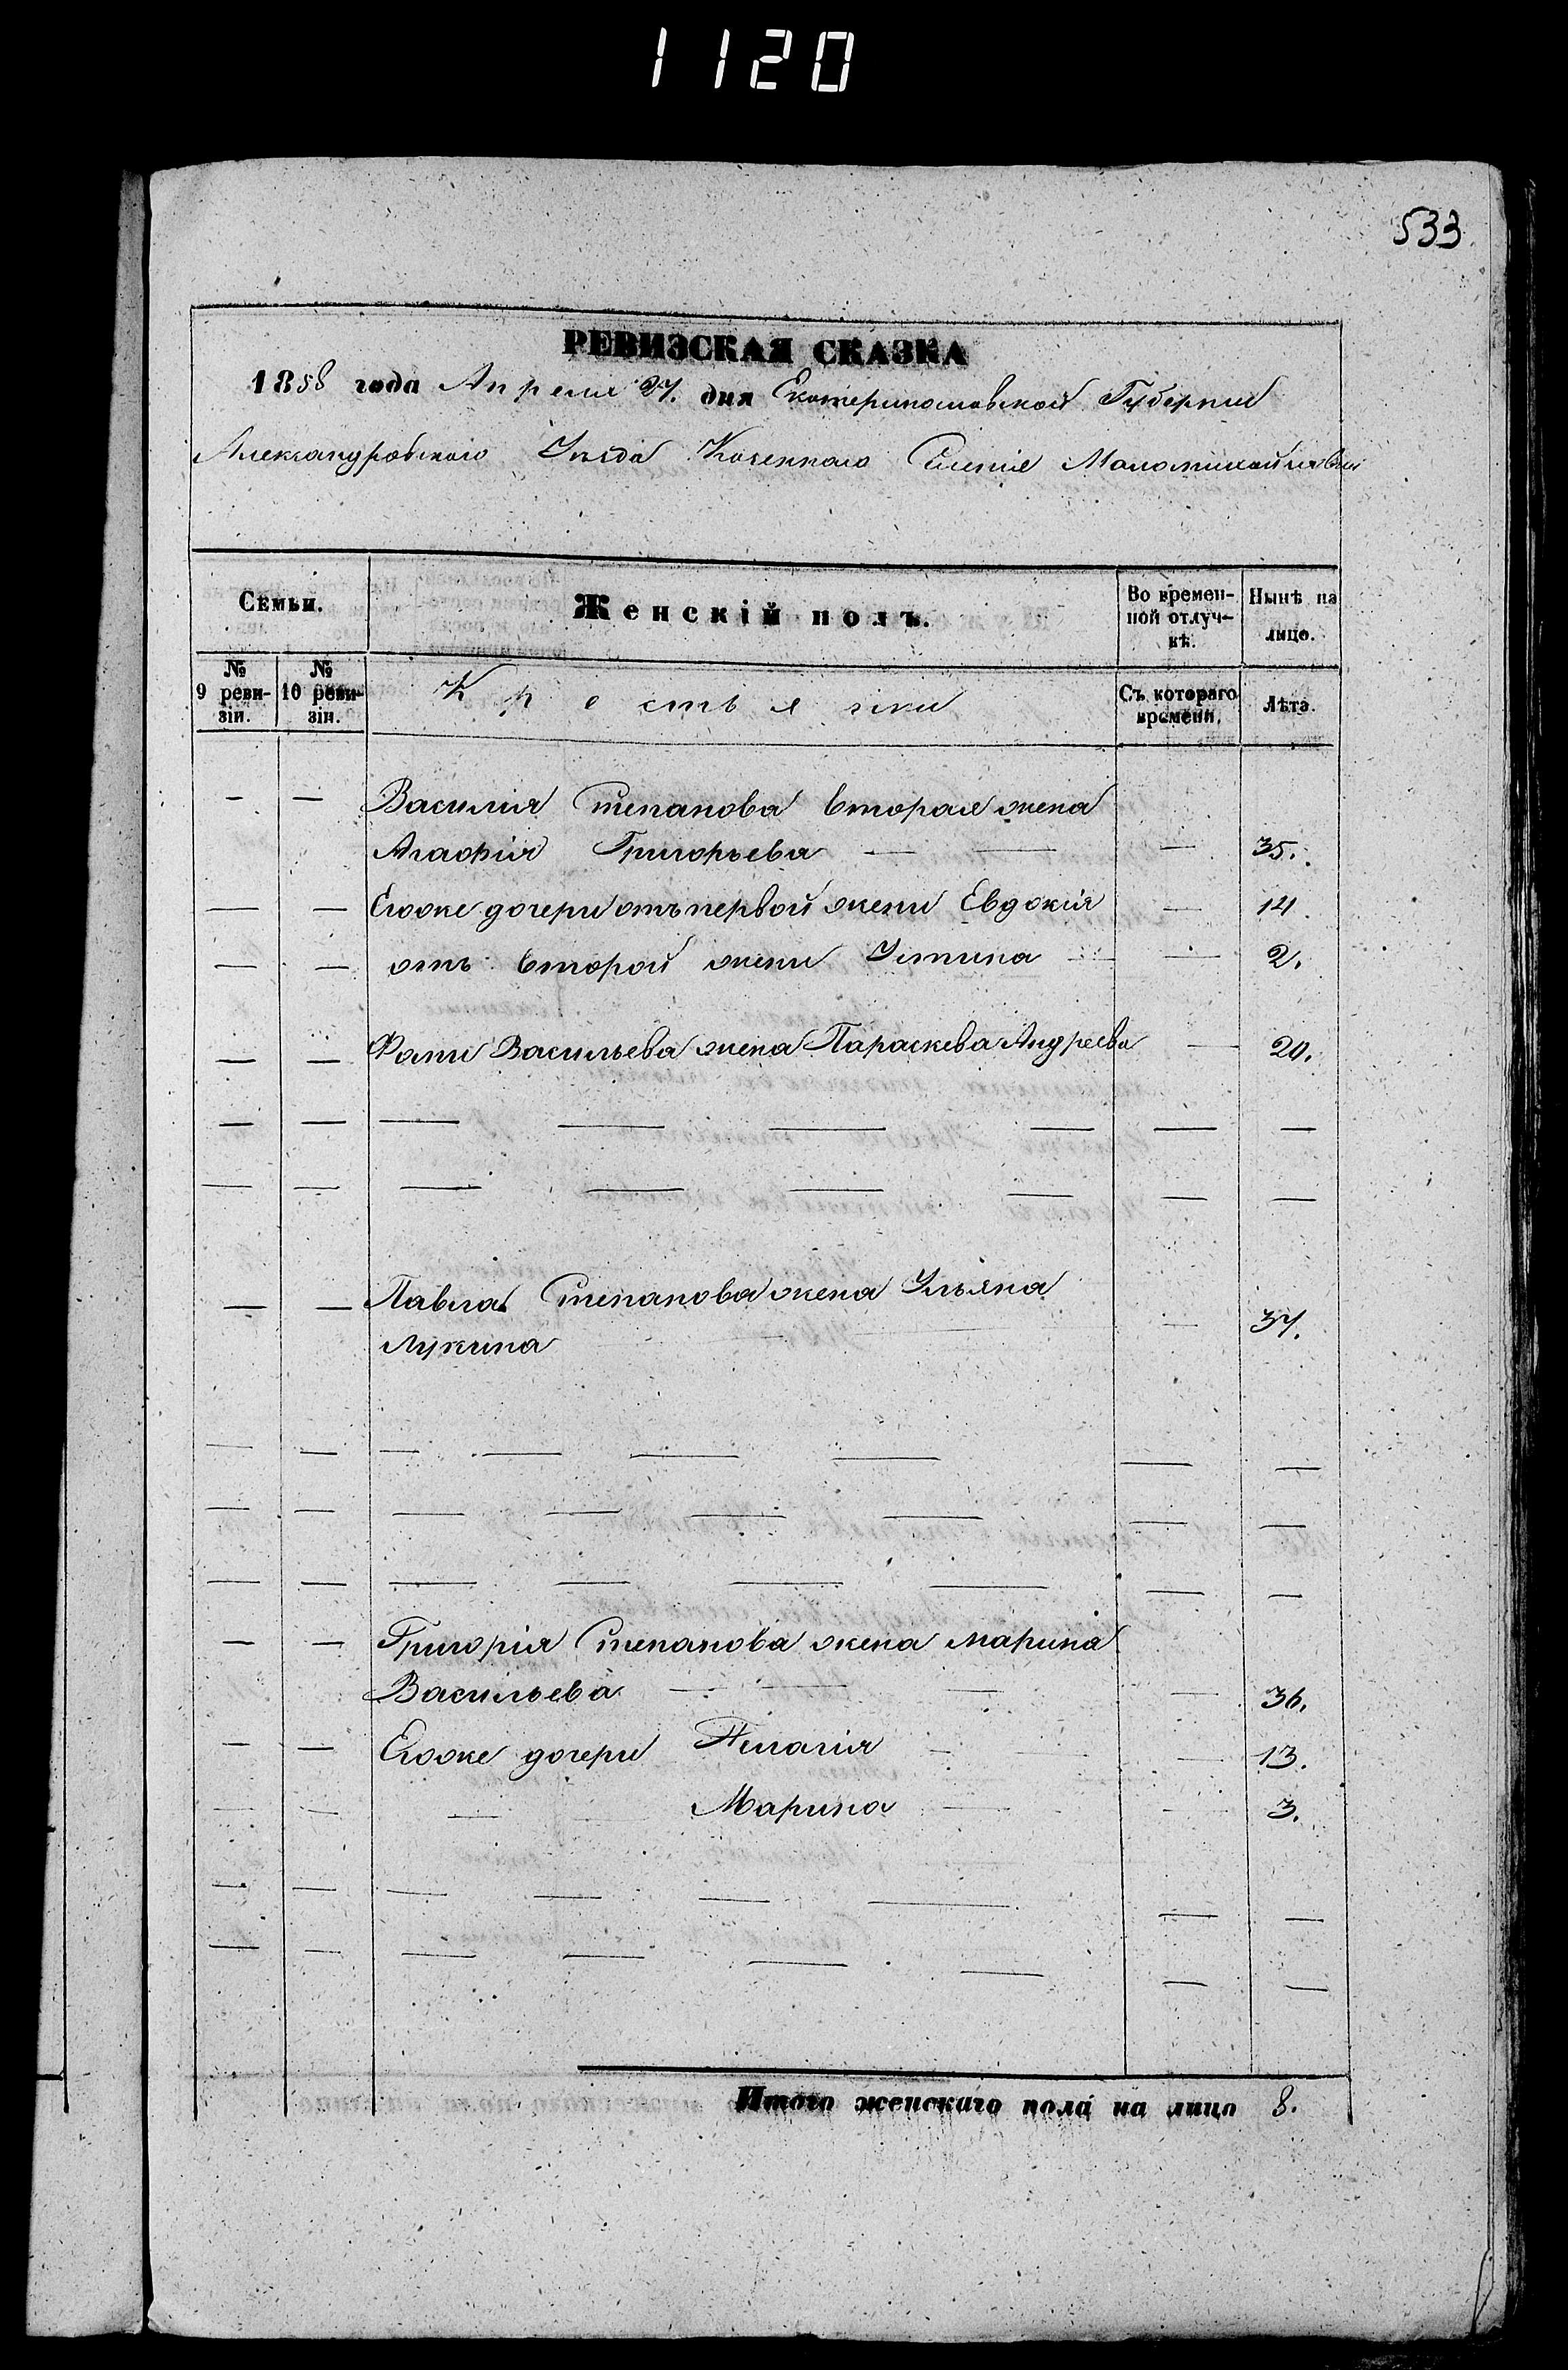 1120
533
РЕВИЗСКАЯ СКАЗКА
1858 года Апреля 27. дня Екатеринославской Губернии
Александровского Уезда Казенного Селения Маломихайловки
Семьи.
Женскій полъ.
Во времен-
ной отлуч-
кѣ.
Нынѣ на
лицо.
№
9 реви-
зіи.
№
10 реви-
зіи.
Крестьянки
Съ котораго
времени.
Лѣта.
— — Василия Степанова вторая жена
Агафия Григорьева — — — 35.
— — Егоже дочери отъ первой жени Евдокія — 14.
— — отъ второй жени Устина — — 2.
— — Фоми Васильева жена Параскева Андреева — 20.
— — — — — — — —
— — — — — — — —
— — Павла Степанова жена Ульяна
Лукина — — — 37.
— — — — — — — —
— — — — — — — —
— — — — — — — —
— — Григорія Степанова жена Марина
Васильева — — — — 36.
— — Егоже дочери Пелагия — — — 13.
— — — — Марина — — — 3.
— — — — — — — —
— — — — — — — —
Итого женскаго пола на лицо 8.